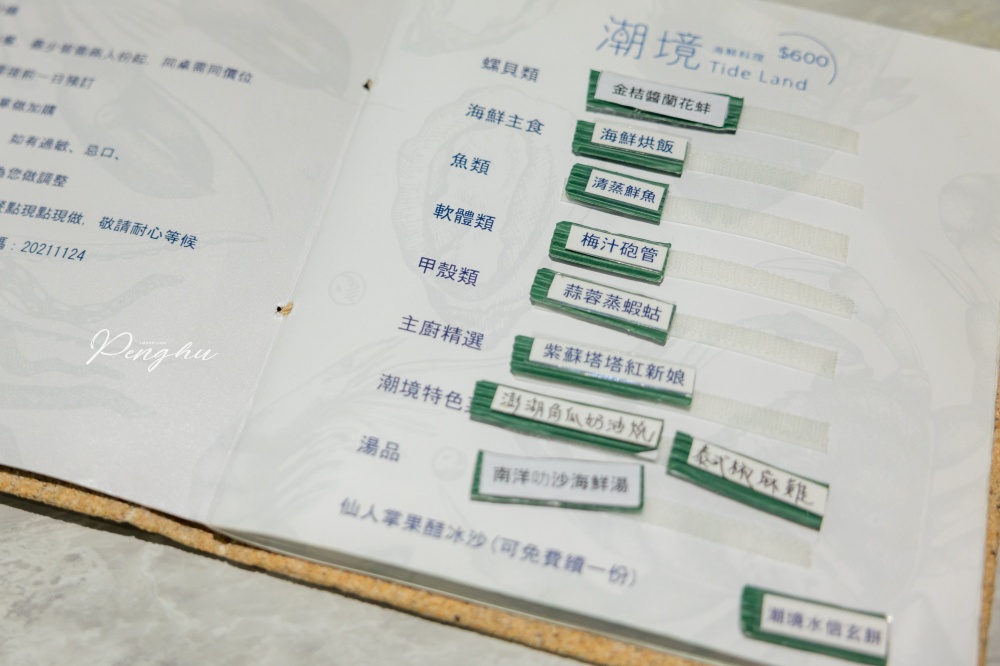 最少營養兩人份起，同桌需同價位
提前一日預訂
單做加購
如有過敏、忌口、
為您做調整
餐點現點現做，敬請耐心等候
：20211124
Penghu
潮境 海鮮料理 $600
Tide Land
螺貝類 金桔醬蘭花蚌
海鮮主食 海鮮烘飯
魚類 清蒸鮮魚
軟體類 梅汁砲管
甲殼類 蒜蓉蒸蝦蛄
主廚精選 紫蘇塔塔紅新娘
潮境特色 澎湖角瓜奶油焗 泰式椒麻雞
湯品 南洋叻沙海鮮湯
仙人掌果醋冰沙(可免費續一份)
潮境水信玄餅